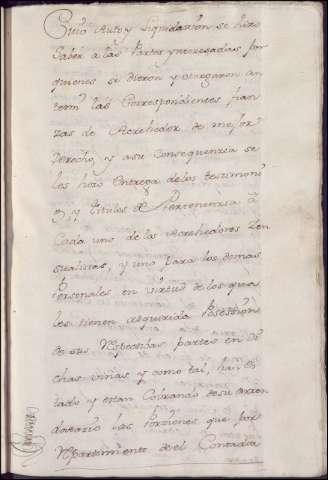 Cuio Auto y Liquidazion se hizo
Saber a las Partes ynteresadas por
quienes se dieron y otorgaron an
temi las Correspondientes fian
zas de Acrehedor de mejor
derecho, y a su Consequenzia se
les hizo Entrega de los testimoni
os y titulos de Pertenenzia á
Cada uno de los Acrehedores Zen
sualistas, y uno para los demas
Personales en virtud de los qua
les tienen adquirida Posession
de sus respectibas partes en di
chas viñas y como tal, han es
tado y estan Cobrando de su arren
datario las Porziones que por
repartimiento de el Contador